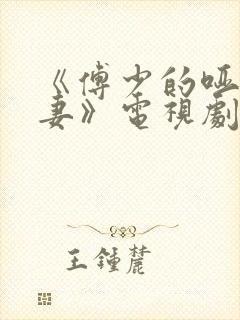 《傅少的哑
妻》電視劇
王鍾麓